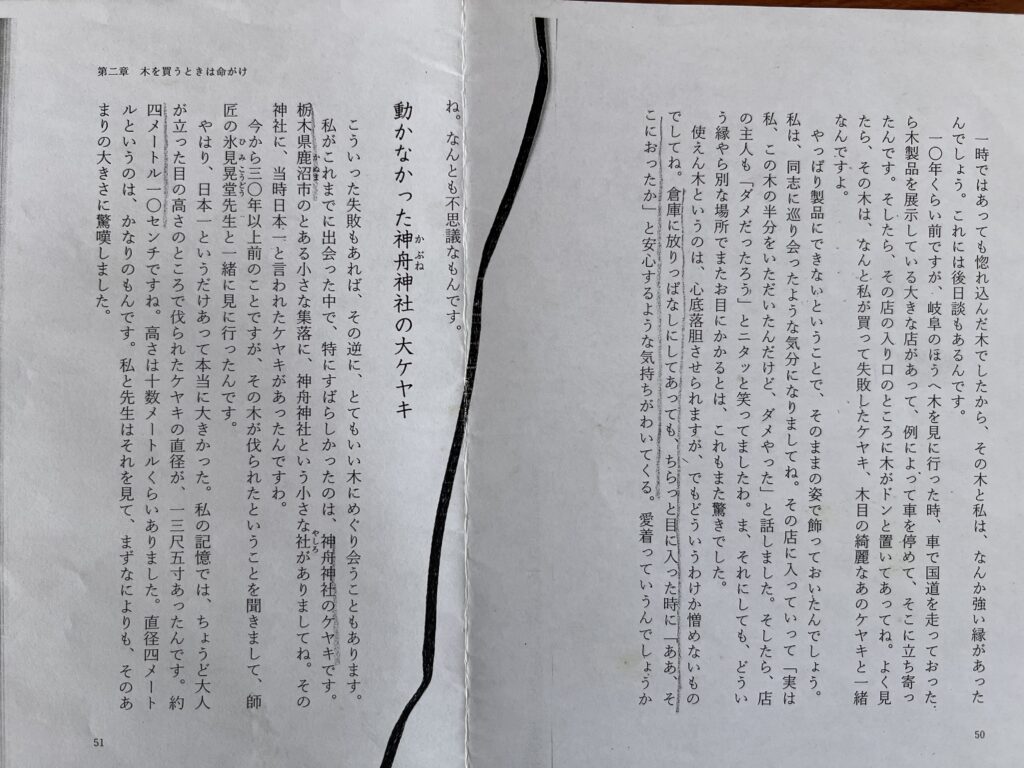 一時ではあっても惚れ込んだ木でしたから、その木と私は、なんか強い縁があった
んでしょう。これには後日談もあるんです。
一〇年くらい前ですが、岐阜のほうへ木を見に行った時、車で国道を走っておった
ら木製品を展示している大きな店があって、例によって車を停めて、そこに立ち寄っ
たんです。そしたら、その店の入り口のところに木がドンと置いてあってね。よく見
たら、その木は、なんと私が買って失敗したケヤキ、木目の綺麗なあのケヤキと一緒
なんですよ。
やっぱり製品にできないということで、そのままの姿で飾っておいたんでしょう。
私は、同志に巡り会ったような気分になりましてね。その店に入っていって「実は
私、この木の半分をいただいたんだけど、ダメやった」と話しました。そしたら、店
の主人も「ダメだったろう」とニタッと笑ってましたわ。ま、それにしても、どうい
う縁やら別な場所でまたお目にかかるとは、これもまた驚きでした。
使えん木というのは、心底落胆させられますが、でもどういうわけか憎めないもの
でしてね。倉庫に放りっぱなしにしてあっても、ちらっと目に入った時に「ああ、そ
こにおったか」と安心するような気持ちがわいてくる。愛着っていうんでしょうか
50
第二章 木を買うときは命がけ
ね。なんとも不思議なもんです。
動かなかった神舟神社の大ケヤキ
かぶね
こういった失敗もあれば、その逆に、とてもいい木にめぐり会うこともあります。
私がこれまでに出会った中で、特にすばらしかったのは、神舟神社のケヤキです。
栃木県鹿沼市のとある小さな集落に、神舟神社という小さな社がありましてね。その
かぬま
やしろ
神社に、当時日本一と言われたケヤキがあったんですわ。
今から三〇年以上前のことですが、その木が伐られたということを聞きまして、師
匠の氷見晃堂先生と一緒に見に行ったんです。
ひみこうどう
やはり、日本一というだけあって本当に大きかった。私の記憶では、ちょうど大人
が立った目の高さのところで伐られたケヤキの直径が、一三尺五寸あったんです。約
四メートル一〇センチですね。高さは十数メートルくらいありました。直径四メート
ルというのは、かなりのもんです。私と先生はそれを見て、まずなによりも、そのあ
まりの大きさに驚嘆しました。
51